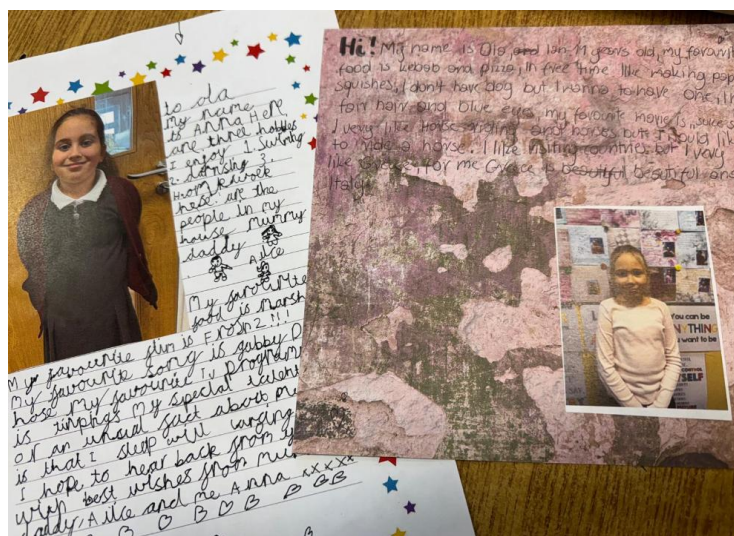 to ola
My name
is ANNA Here
are three hobbies
I enjoy 1. Swimg
2. dancing 3.
Homework
hese are the
people in my
house Mummy
daddy
Alice
My favourite
food is Marsh
My favourite film is Frosn2!!!
My favourite song is gabby D
hose My favourite Tv Programe
is My special talent
or an unual fact about m
is that I sleep with
I hope to hear back from
with best wishes from Mu
daddy, Alice and me Anna xxxxx
Hi! My name is Ola, and I am 11 years old, my favourit
food is kebab and pizza, in free time like making pap
squishes, I don't have dog but I wanna to have one, I h
fair hair and blue eyes, my favourite movie is
I very like horse and horses but I would like
to ride a horse. I like visiting countries but I very
like Greece, for me Greece is beautiful beautiful and
Italy.
You can be
NYTHING
u want to be
SELF